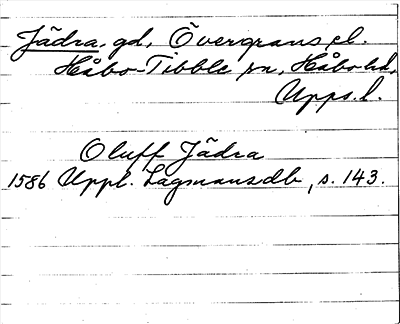 Jädra, gd, Övergrans el.
Håbo-Tibble sn, Håbo hd,
Upps. l.
Oluff Jädra
1586 Uppl. Lagmansdb, s. 143.